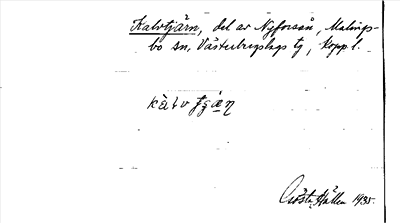 Kalvtjärn, del av Nyforsån, Malings-
bo sn, Västerbergslags tg, Kopp l.
Gösta Hållen 1935.